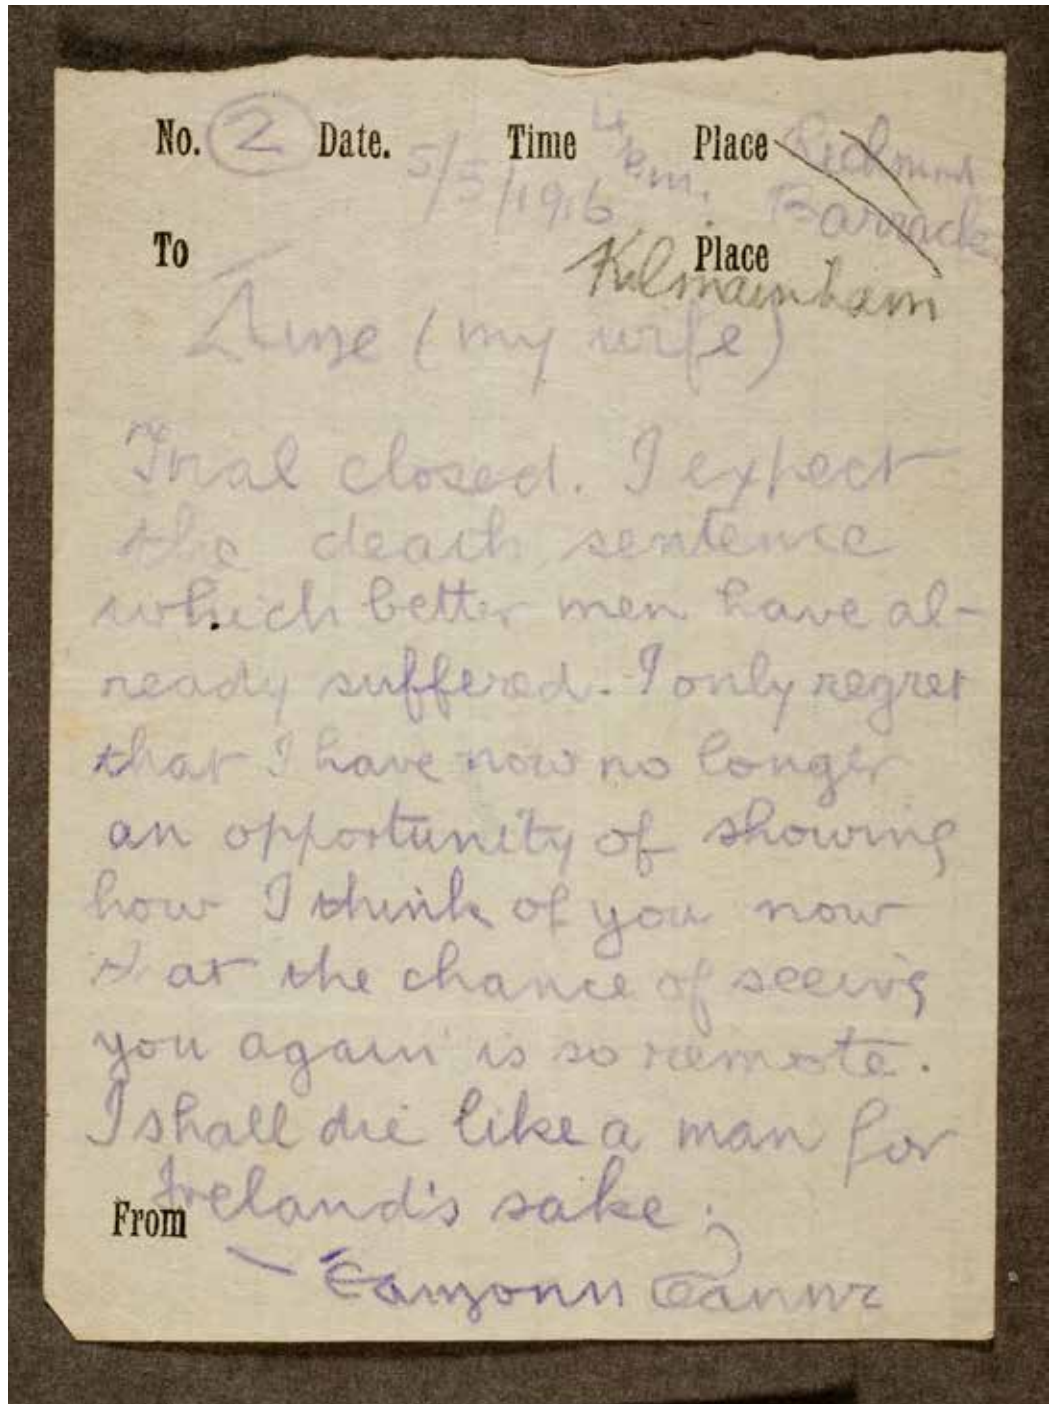 No. 2 Date. Time 4 p.m. Place Richmond
5/5/1916 Barrack
To Place
Kilmainham
Áine (my wife)
Trial closed. I expect
the death sentence
which better men have al-
ready suffered. I only regret
that I have now no longer
an opportunity of showing
how I think of you now
that the chance of seeing
you again is so remote.
I shall die like a man for
Ireland's sake.
From
Éamonn Ceannt